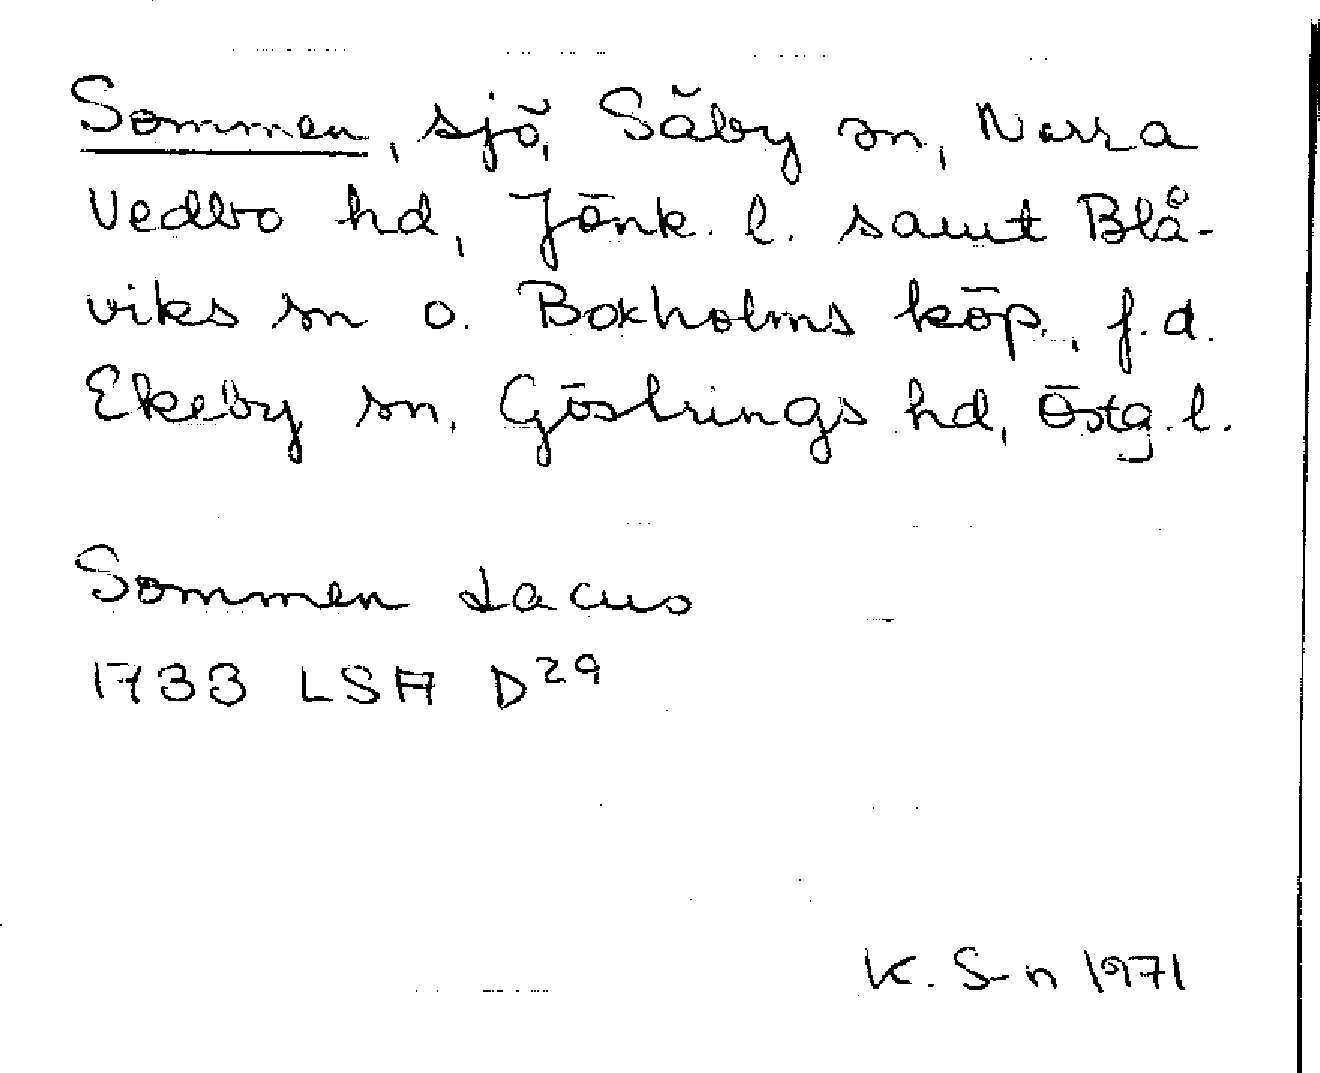 Sommen, sjö, Säby sn, Norra
Vedbo hd, Jönk. l. samt Blå-
viks sn o. Boxholms köp., f.d.
Ekeby sn, Göstrings hd, Östg. l.
Sommen Lacus
1733 LSA D29
K. S-n 1971